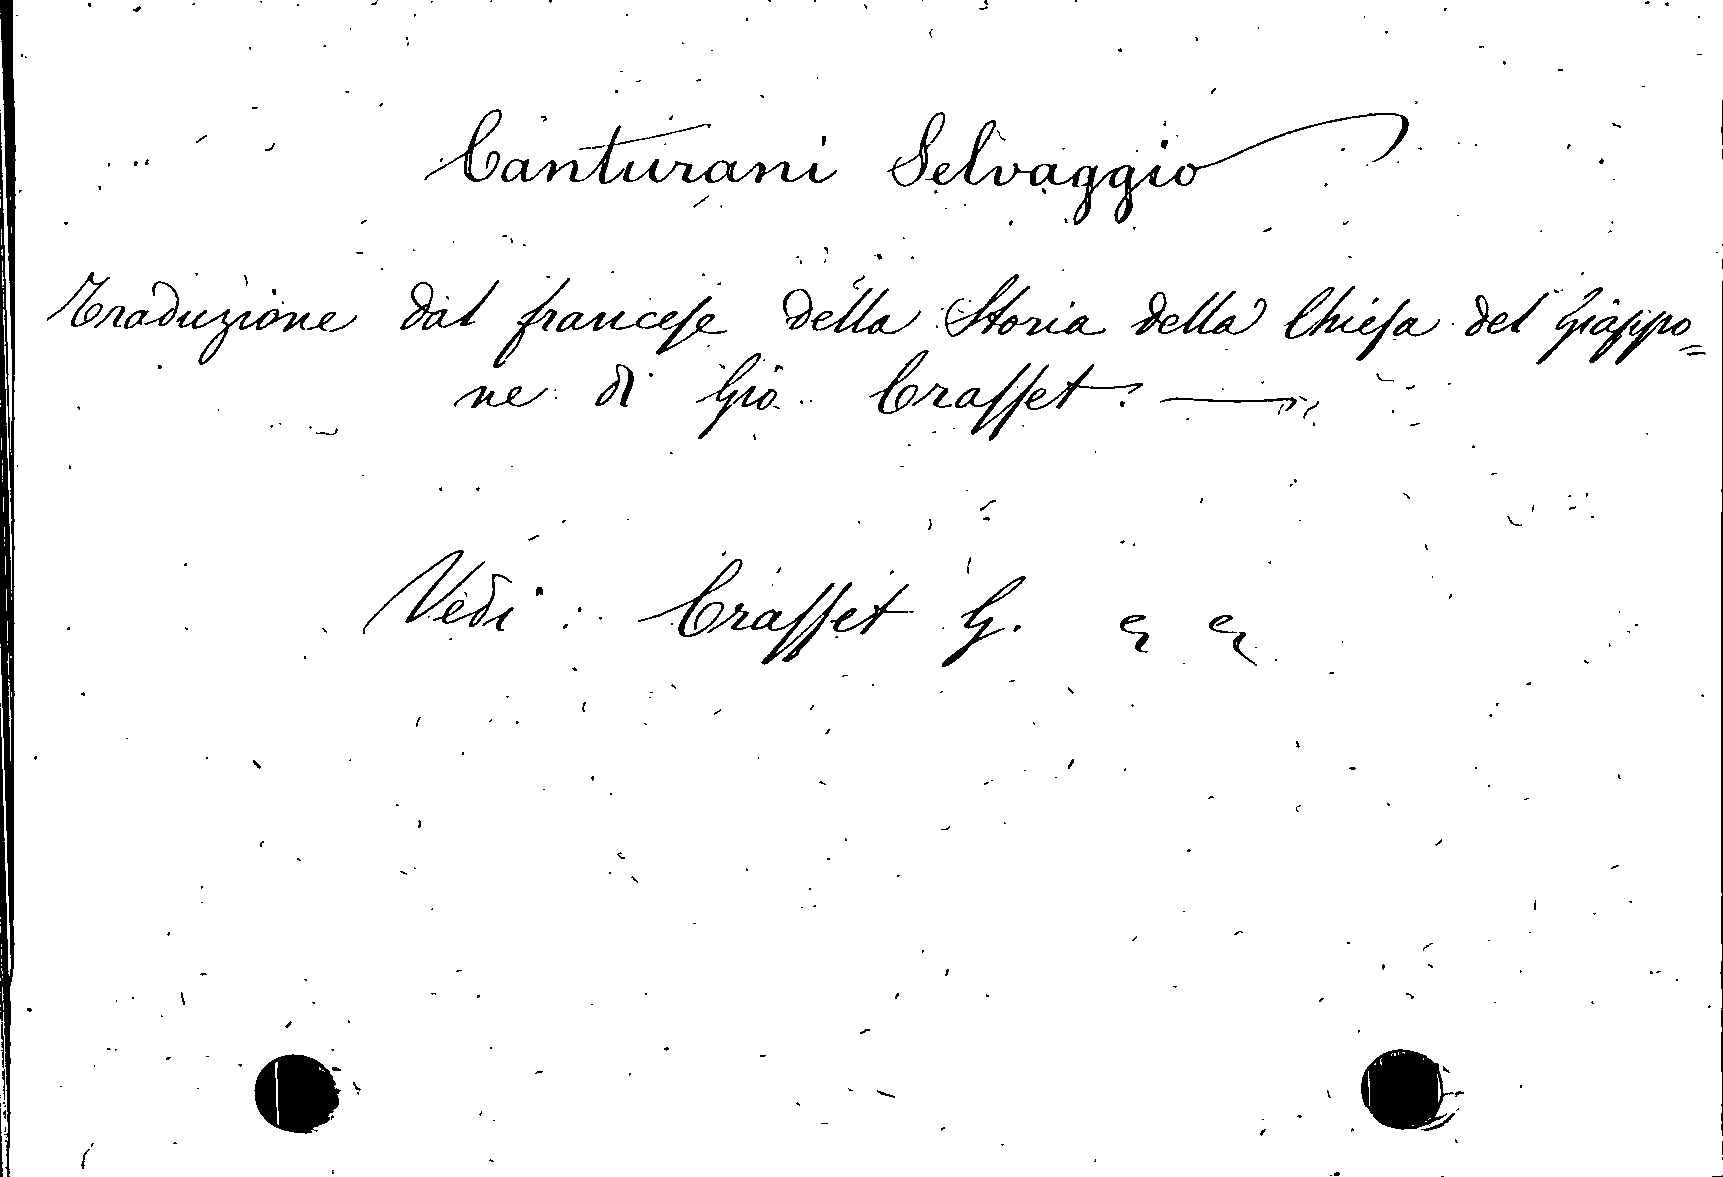 Canturani Selvaggio
Traduzione dal francese della Storia della Chiesa del Giappo=
ne di Gio. Crasset. —
Vedi: Crasset G.